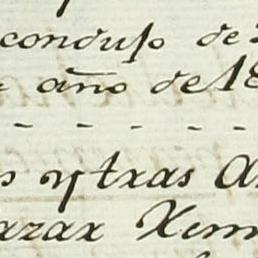 conduſo de
año de 18
- - - - - -
s ytras A
azar Xem